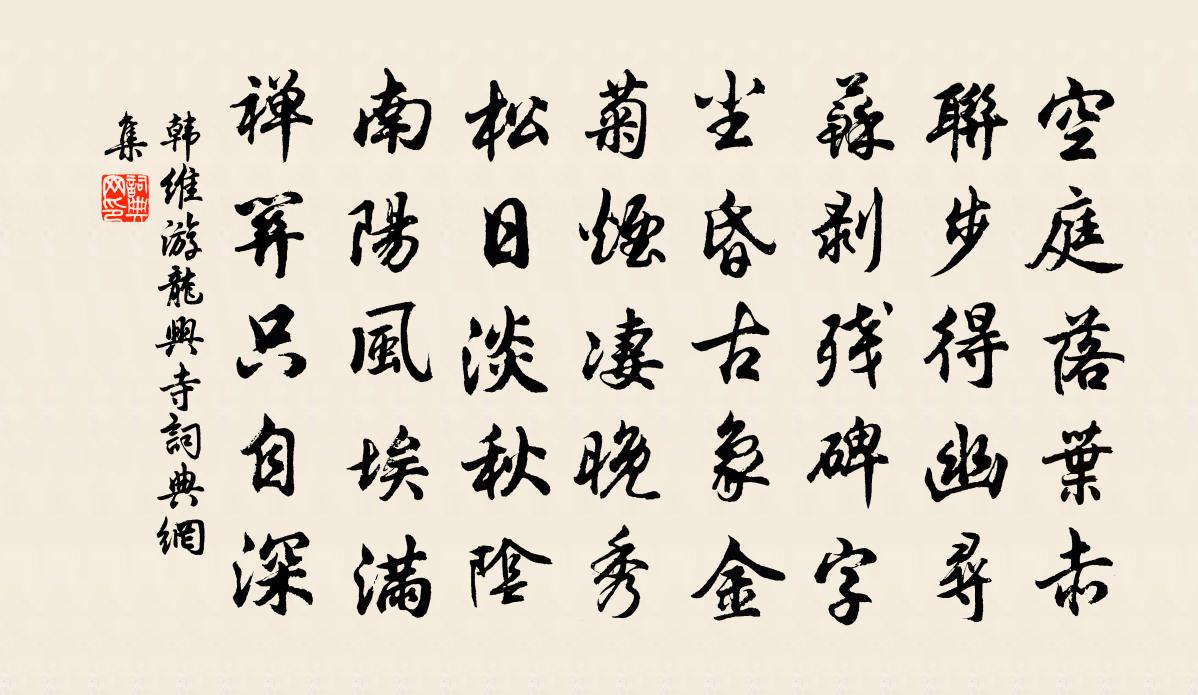 空庭落葉赤
聯步得幽尋
蘚剥残碑字
尘昏古象金
菊煙凄晚秀
松日淡秋陰
南陽風埃滿
禅関只自深
韩維游龍興寺詞典網
集
詞典
网印